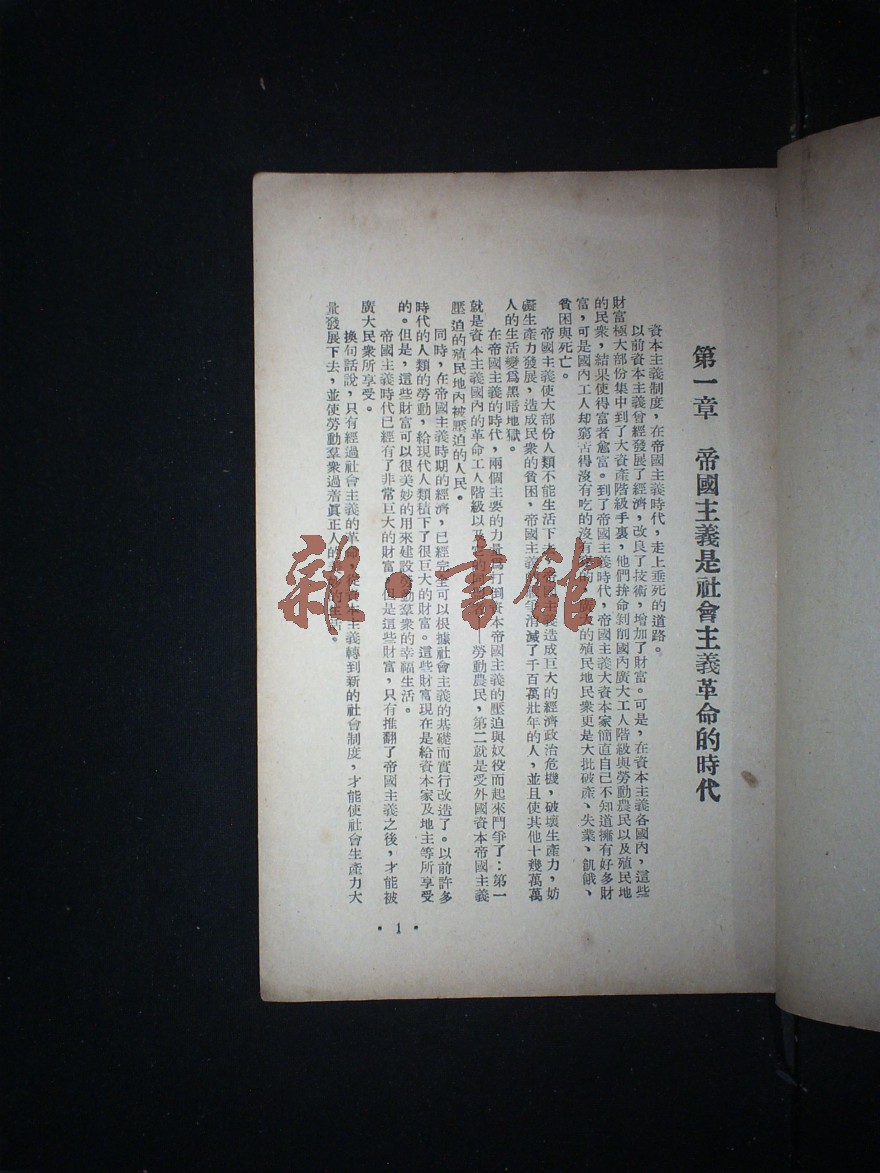 第一章　帝國主義是社會主義革命的時代
資本主義制度，在帝國主義時代，走上垂死的道路。
以前資本主義曾經發展了經濟，改良了技術，增加了財富。可是，在資本主義各國內，這些
財富極大部份集中到了大資產階級手裏，他們拚命剝削國內廣大工人階級與勞動農民以及殖民地
的民衆，結果使得富者愈富。到了帝國主義時代，帝國主義大資本家簡直自己不知道擁有好多財
富，可是國內工人却窮苦得沒有吃的沒有 大的殖民地民衆更是大批破產、失業、飢餓、
貧困與死亡。
帝國主義使大部份人類不能生活下去 帝國主義造成巨大的經濟政治危機，破壞生產力，妨
礙生產力發展，造成民衆的貧困，帝國主義 爭消滅了千百萬壯年的人，並且使其他十幾萬萬
人的生活變爲黑暗地獄。
在帝國主義的時代，兩個主要的力量爲打到資本帝國主義的壓迫與奴役而起來鬥爭了：第一
就是資本主義國內的革命工人階級以及 的同 ——勞動農民，第二就是受外國資本帝國主義
壓迫的殖民地內被壓迫的人民。
同時，在帝國主義時期的經濟，已經完全可以根據社會主義的基礎而實行改造了。以前許多
時代的人類的勞動，給現代人類積下了很巨大的財富。這些財富現在是給資本家及地主等所享受
的。但是，這些財富可以很美妙的用來建設勞動羣衆的幸福生活。
帝國主義時代已經有了非常巨大的財富 但是這些財富，只有推翻了帝國主義之後，才能被
廣大民衆所享受。
換句話說，只有經過社會主義的革命 從資本主義轉到新的社會制度，才能使社會生產力大
量發展下去，並使勞動羣衆過着眞正人的 的生活。
• 1 •
雜·書館